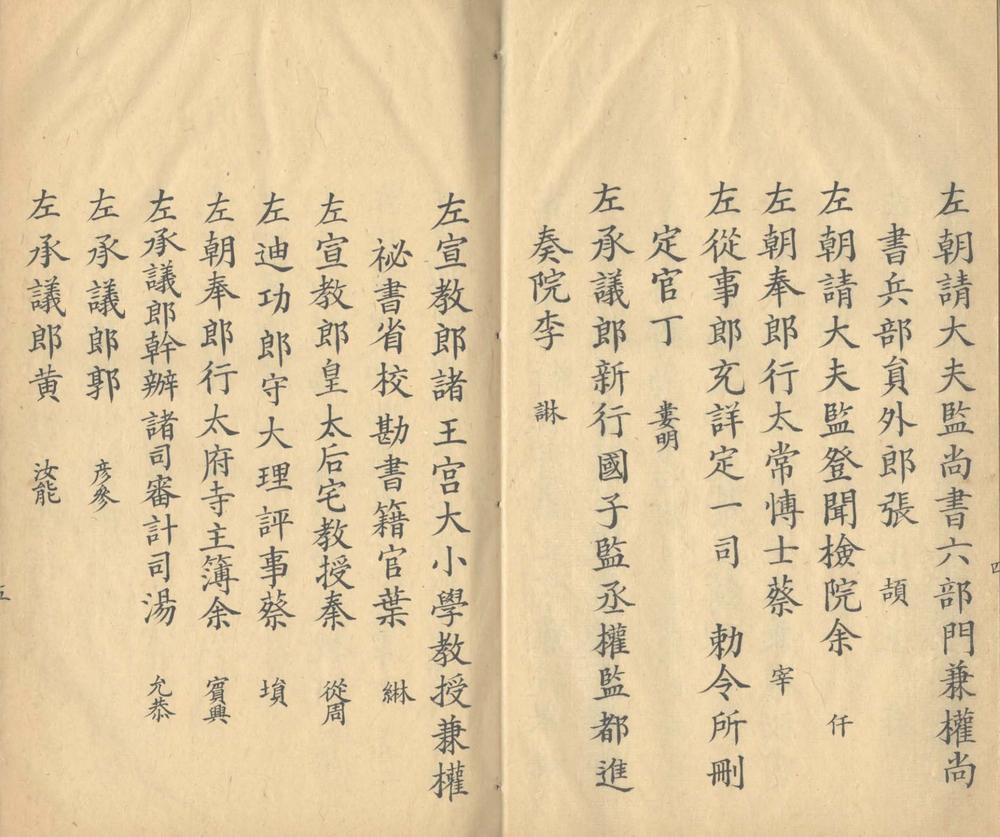 左朝請大夫監尚書六部門兼權尚
書兵部員外郎張 頡
左朝請大夫監登聞檢院余 仟
左朝奉郎行太常愽士蔡 宰
左從事郎充詳定一司 勅令所刪
定官丁 婁明
左承議郎新行國子監丞權監都進
奏院李 諃
四
左宣教郎諸王宫大小學教授兼權
祕書省校勘書籍官葉 綝
左宣教郎皇太后宅教授秦 從周
左迪功郎守大理評事蔡 塤
左朝奉郎行太府寺主簿余 賓興
左承議郎幹辦諸司審計司湯 允恭
左承議郎郭 彦參
左承議郎黄 汝能
五